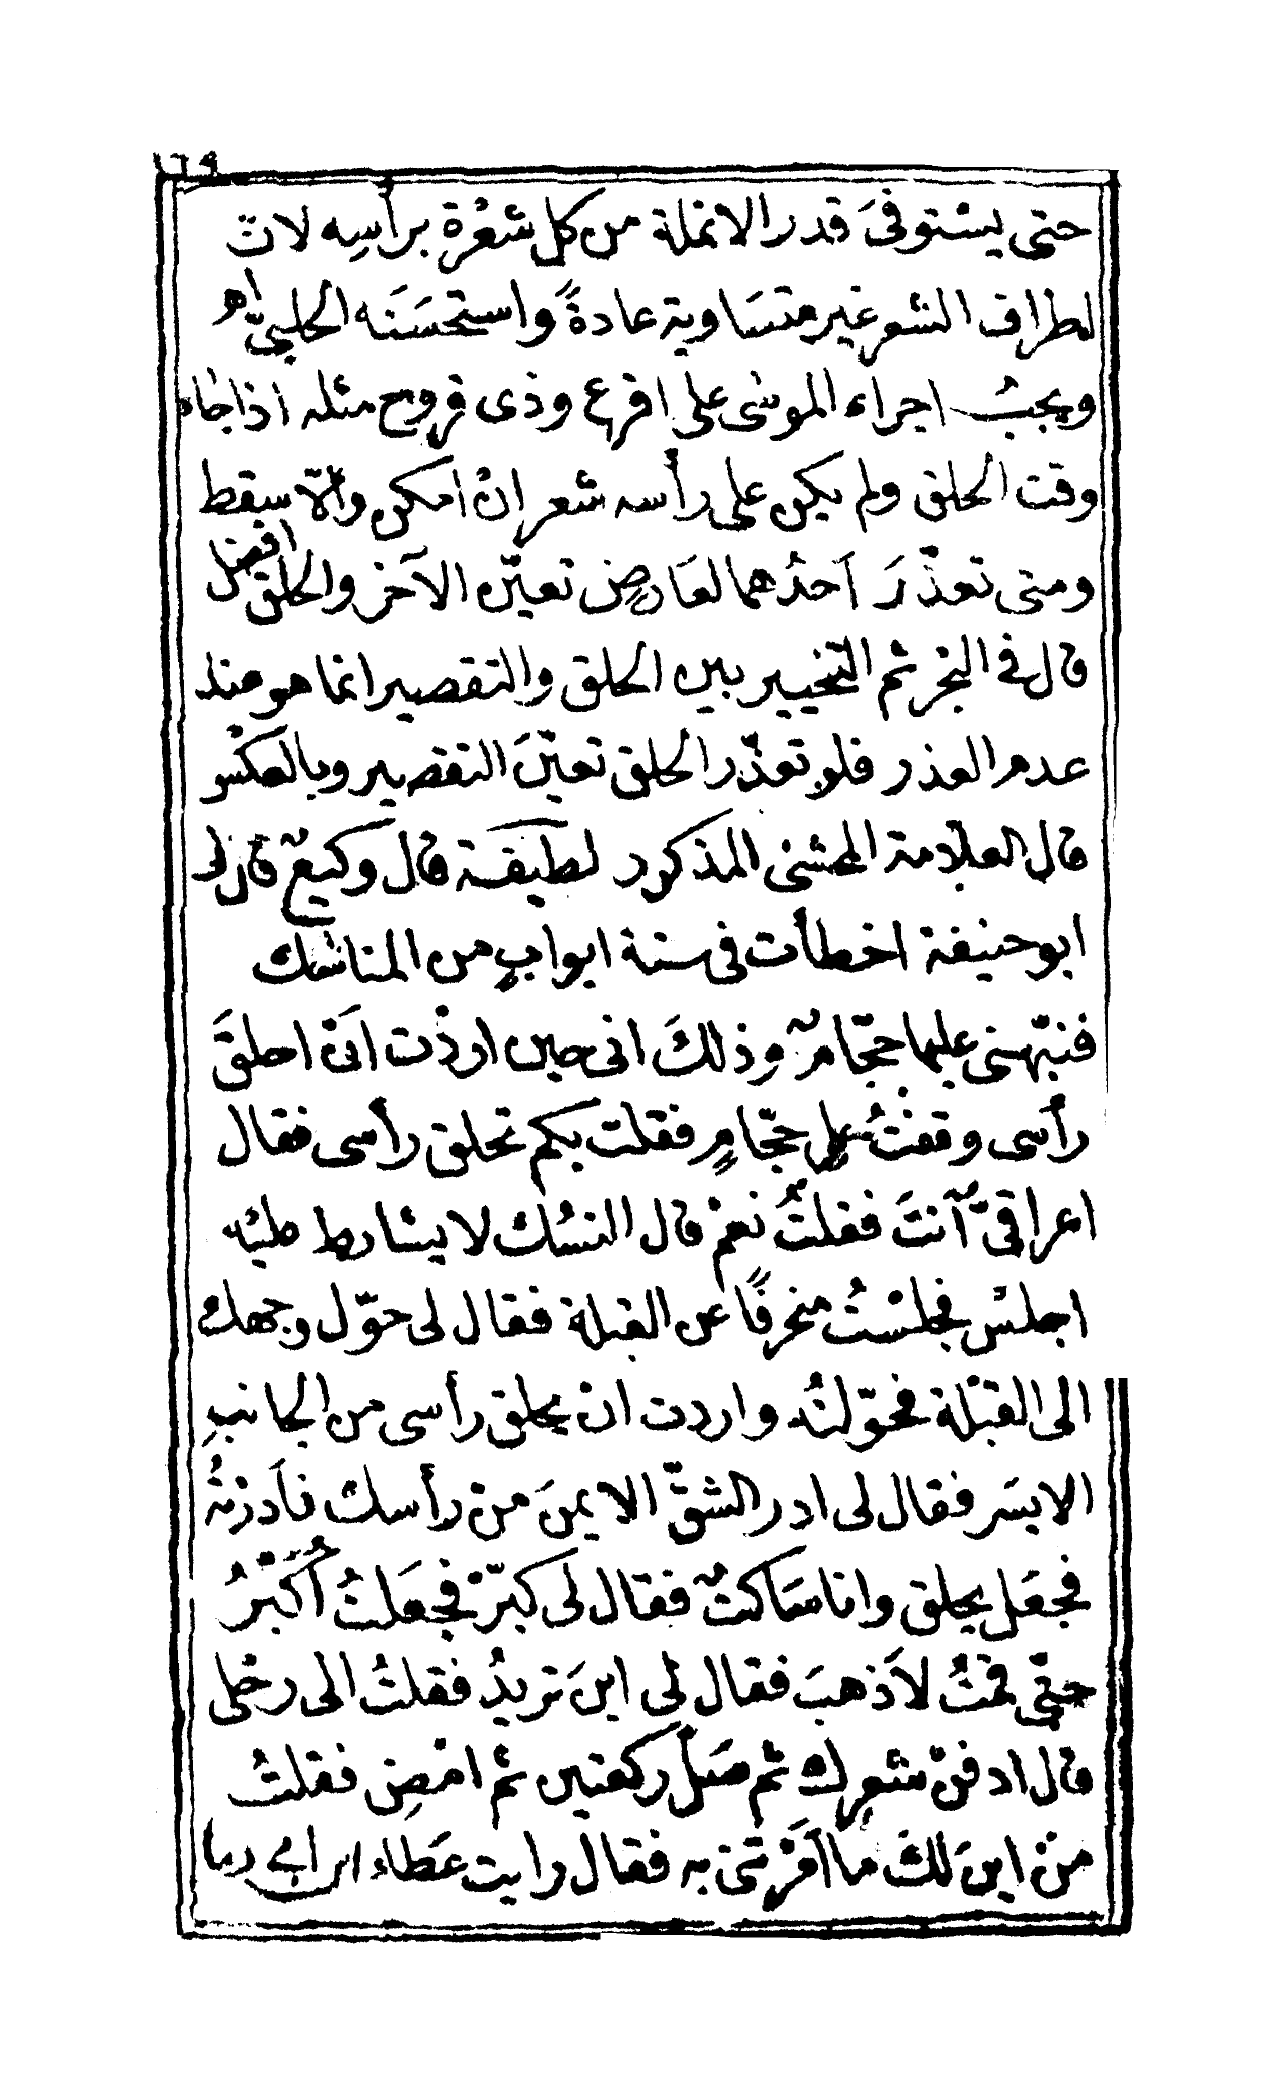 ١٦٩
حتى يسْتوفىَ قدر الانملة من كل شعْرة برأسِه لانّ
اطراف الشعر غير متسَاوية عادةً واستحسَنه الحلبيّ اه
ويجبُ اجراء الموسى على اقرع وذى قروح مثله اذا جاء
وقت الحلق ولم يكن على رأسه شعر إنْ امكن والّا سقط
ومتى تعذّرَ احدُهما لعَارضٍ تعيّن الآخر والحلق افضل
قال فى البحر ثم التّخيير بين الحلق والتقصير انما هو عند
عدم العذر فلو تعذّر الحلق تعيّنَ التقصير وبالعكس
قال العلّامة المحشى المذكور لطيفة قال وكيعٌ قال لى
ابو حنيفة اخطأت فى ستة ابوابٍ من المناسك
فنبّهنى عليها حجّامٌ وذلكَ انى حين اردْت انْ احلقَ
رأسى وقفْتُ على حجّامٍ فقلت بكم تحلق رأسى فقال
اعراقىٌّ أنتَ فقلتُ نعمْ قال النسُك لا يشارط عليْه
اجلسْ فجلسْتُ منحرفًا عن القبلة فقال لى حوّل وجهك
الى القبْلة فحوّلتُه واردت انْ يحلق رأسى من الجانبِ
الايسَر فقال لى ادر الشقّ الايمنَ منْ رأسك فأدرْتهُ
فجعَل يحلق وانا ساكتٌ فقال لى كبّرْ فجعَلتُ أُكَبّرُ
حتّى قمْتُ لأذهبَ فقال لى اينَ تريدُ فقلتُ الى رحْلى
قال ادفنْ شعرك ثم صَلّ ركعتين ثم امْضِ فقلتُ
منْ اينَ لكَ ما أمَرْتنى به فقال رايت عَطاء ابن ابى رباح